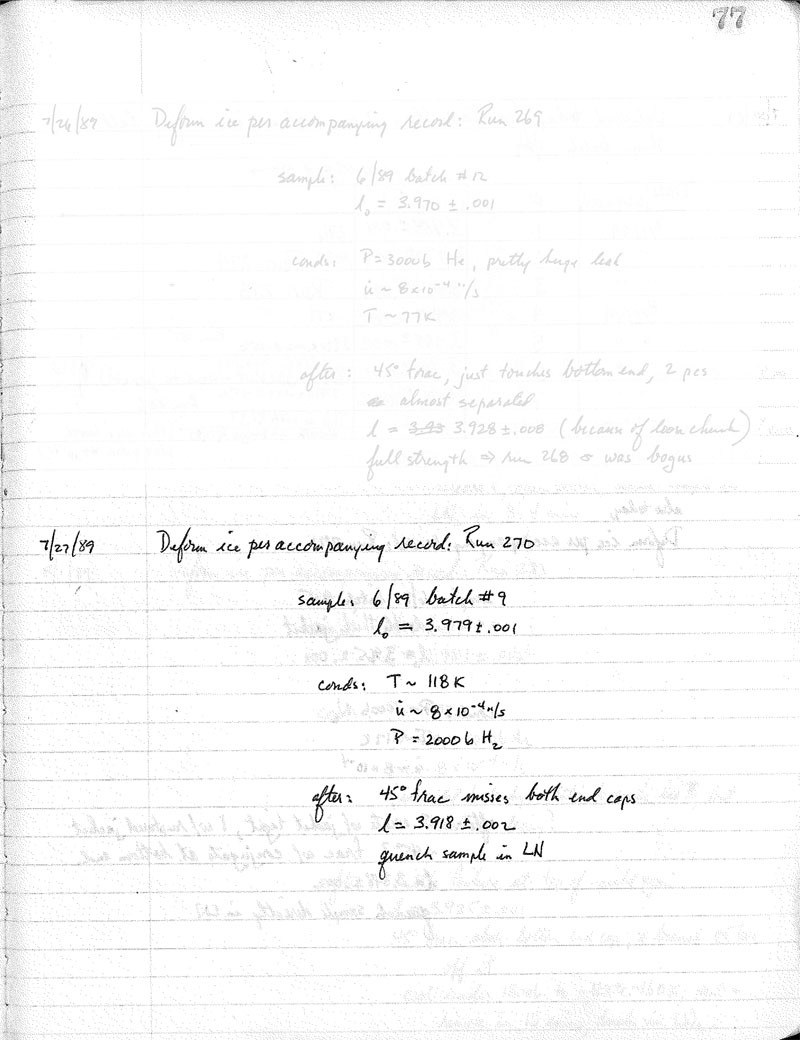 77
7/26/89 Deform ice per accompanying record: Run 269
sample: 6/89 batch #12
l₀ = 3.970 ± .001
conds: P = 3000 b He, pretty huge leak
u̇ ~ 8×10⁻⁴ "/s
T ~ 77K
after: 45° frac, just touches bottom end, 2 pcs
almost separated
l = 3.93 3.928 ± .008 (because of loose chunk)
full strength ⇒ run 268 σ was bogus
7/27/89 Deform ice per accompanying record: Run 270
sample: 6/89 batch #9
l₀ = 3.979 ± .001
conds: T ~ 118 K
u̇ ~ 8×10⁻⁴ "/s
P = 2000 b H₂
after: 45° frac misses both end caps
l = 3.918 ± .002
quench sample in LN